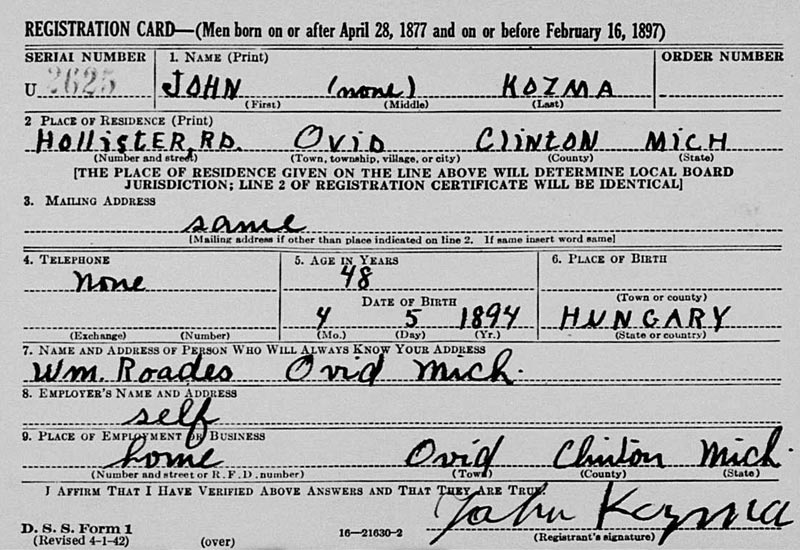 REGISTRATION CARD—(Men born on or after April 28, 1877 and on or before February 16, 1897)
SERIAL NUMBER 1. NAME (Print) ORDER NUMBER
U 2625 JOHN (none) KOZMA
(First) (Middle) (Last)
2 PLACE OF RESIDENCE (Print)
HOLLISTER RD. OVID CLINTON MICH
(Number and street) (Town, township, village, or city) (County) (State)
[THE PLACE OF RESIDENCE GIVEN ON THE LINE ABOVE WILL DETERMINE LOCAL BOARD
JURISDICTION; LINE 2 OF REGISTRATION CERTIFICATE WILL BE IDENTICAL]
3. MAILING ADDRESS
same
[Mailing address if other than place indicated on line 2. If same insert word same]
4. TELEPHONE 5. AGE IN YEARS 6. PLACE OF BIRTH
none 48
DATE OF BIRTH (Town or county)
4 5 1894 HUNGARY
(Exchange) (Number) (Mo.) (Day) (Yr.) (State or country)
7. NAME AND ADDRESS OF PERSON WHO WILL ALWAYS KNOW YOUR ADDRESS
Wm. Roades Ovid Mich.
8. EMPLOYER'S NAME AND ADDRESS
self
9. PLACE OF EMPLOYMENT OR BUSINESS
home Ovid Clinton Mich.
(Number and street or R. F. D. number) (Town) (County) (State)
I AFFIRM THAT I HAVE VERIFIED ABOVE ANSWERS AND THAT THEY ARE TRUE.
John Kozma
D. S. S. Form 1 16—21630-2 (Registrant's signature)
(Revised 4-1-42) (over)